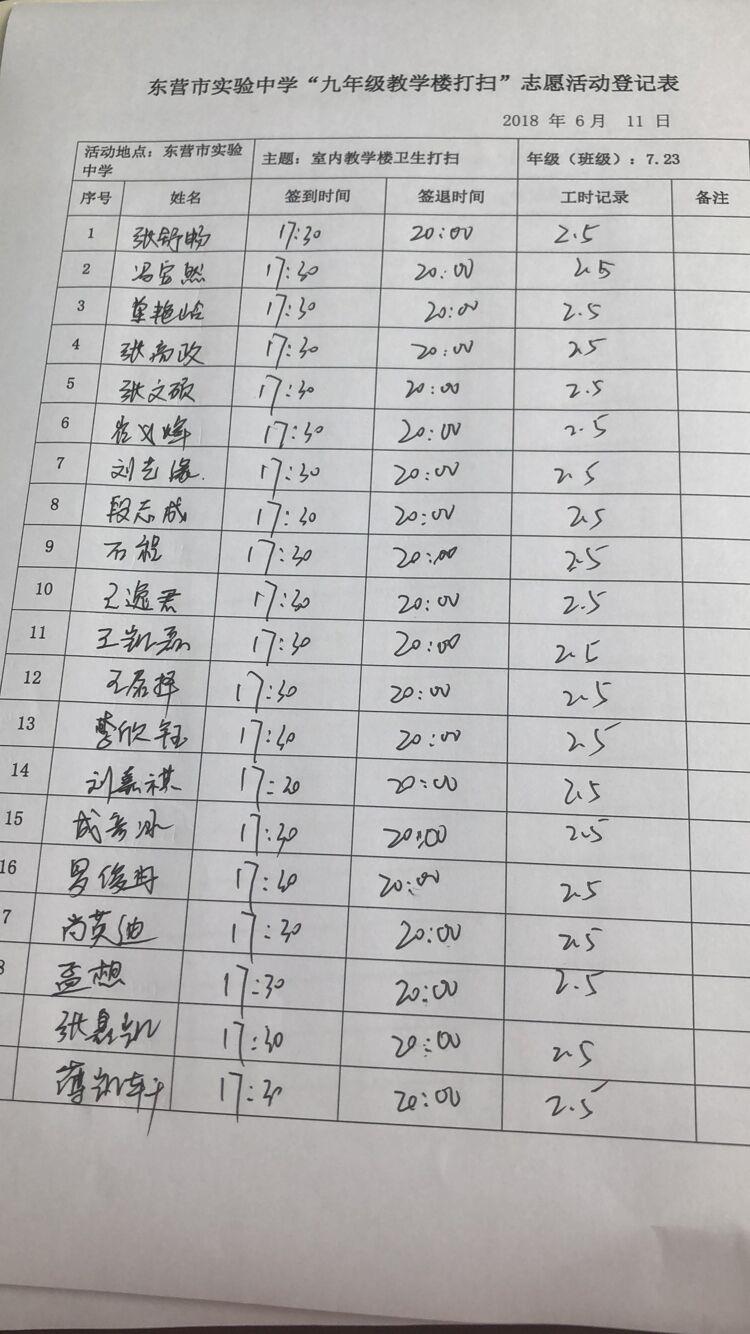 东营市实验中学“九年级教学楼打扫”志愿活动登记表
2018 年 6 月 11 日
活动地点：东营市实验中学 主题：室内教学楼卫生打扫 年级（班级）：7.23
序号 姓名 签到时间 签退时间 工时记录 备注
1 张舒畅 17:30 20:00 2.5
2 冯宜然 17:30 20:00 2.5
3 17:30 20:00 2.5
4 张高政 17:30 20:00 2.5
5 张文硕 17:30 20:00 2.5
6 17:30 20:00 2.5
7 刘志 17:30 20:00 2.5
8 段志成 17:30 20:00 2.5
9 石程 17:30 20:00 2.5
10 王逸君 17:30 20:00 2.5
11 王凯磊 17:30 20:00 2.5
12 王居择 17:30 20:00 2.5
13 李欣钰 17:30 20:00 2.5
14 刘嘉祺 17:30 20:00 2.5
15 成 冰 17:30 20:00 2.5
16 罗俊 17:30 20:00 2.5
7 尚英迪 17:30 20:00 2.5
8 孟想 17:30 20:00 2.5
张 凯 17:30 20:00 2.5
薄凯轩 17:30 20:00 2.5